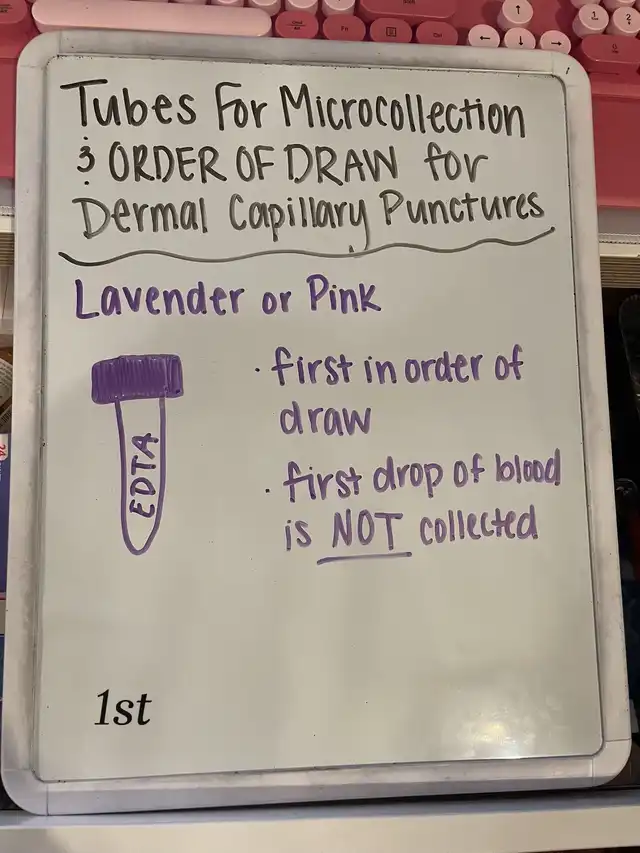 Tubes For Microcollection
& ORDER OF DRAW for
Dermal Capillary Punctures
Lavender or Pink
EDTA
· first in order of
draw
· first drop of blood
is NOT collected
1st